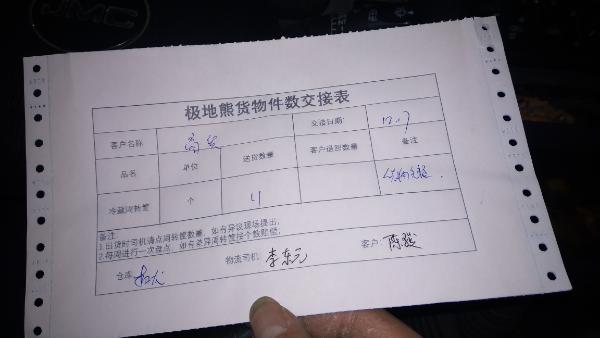 JMC
极地熊货物件数交接表
客户名称 交接日期: 12.7
品名 单位 送货数量 客户退回数量 备注
冷藏周转筐 个 4
备注:
1.出货时司机清点周转筐数量,如有异议现场提出;
2.每周进行一次盘点,如有差异周转筐按个数赔偿;
仓库: 物流司机: 李东元 客户: 陈骏